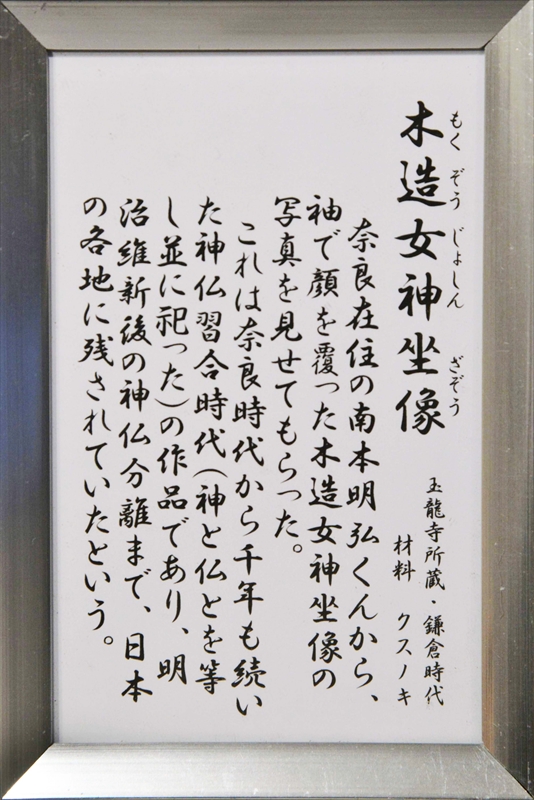 木造女神坐像
もくぞうじょしんざぞう
玉龍寺所蔵・鎌倉時代
材料 クスノキ
奈良在住の南本明弘くんから、
袖で顔を覆った木造女神坐像の
写真を見せてもらった。
これは奈良時代から千年も続い
た神仏習合時代(神と仏とを等
し並に祀った)の作品であり、明
治維新後の神仏分離まで、日本
の各地に残されていたという。